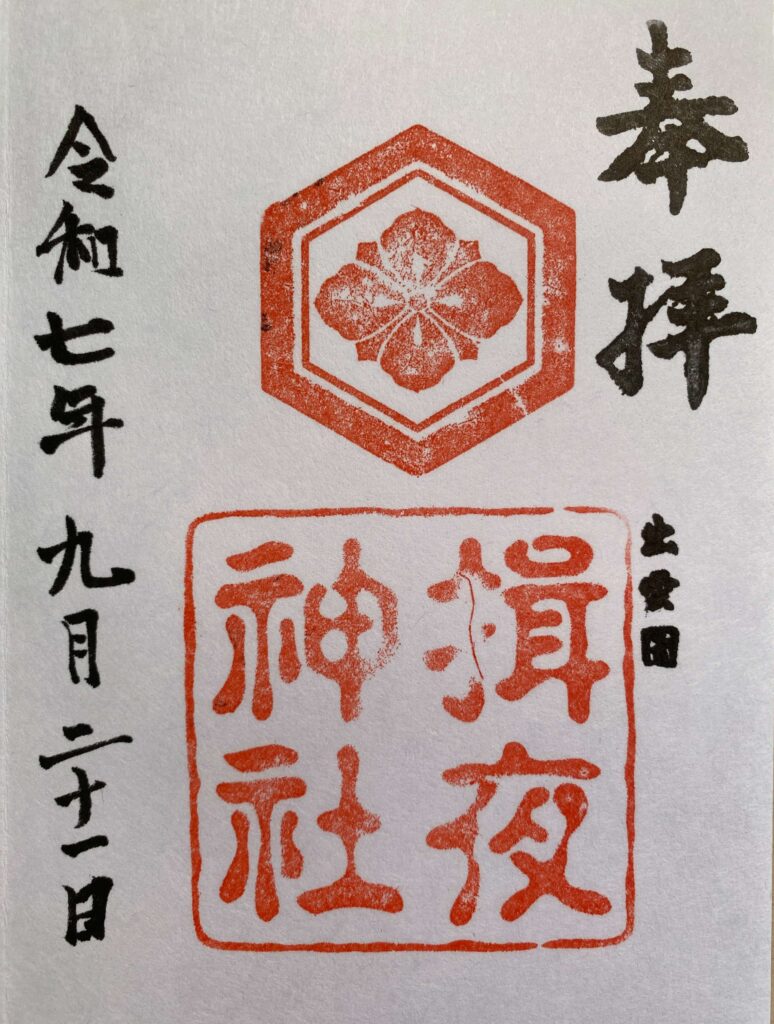 奉拝
出雲國
揖夜
神社
令和七年九月二十一日